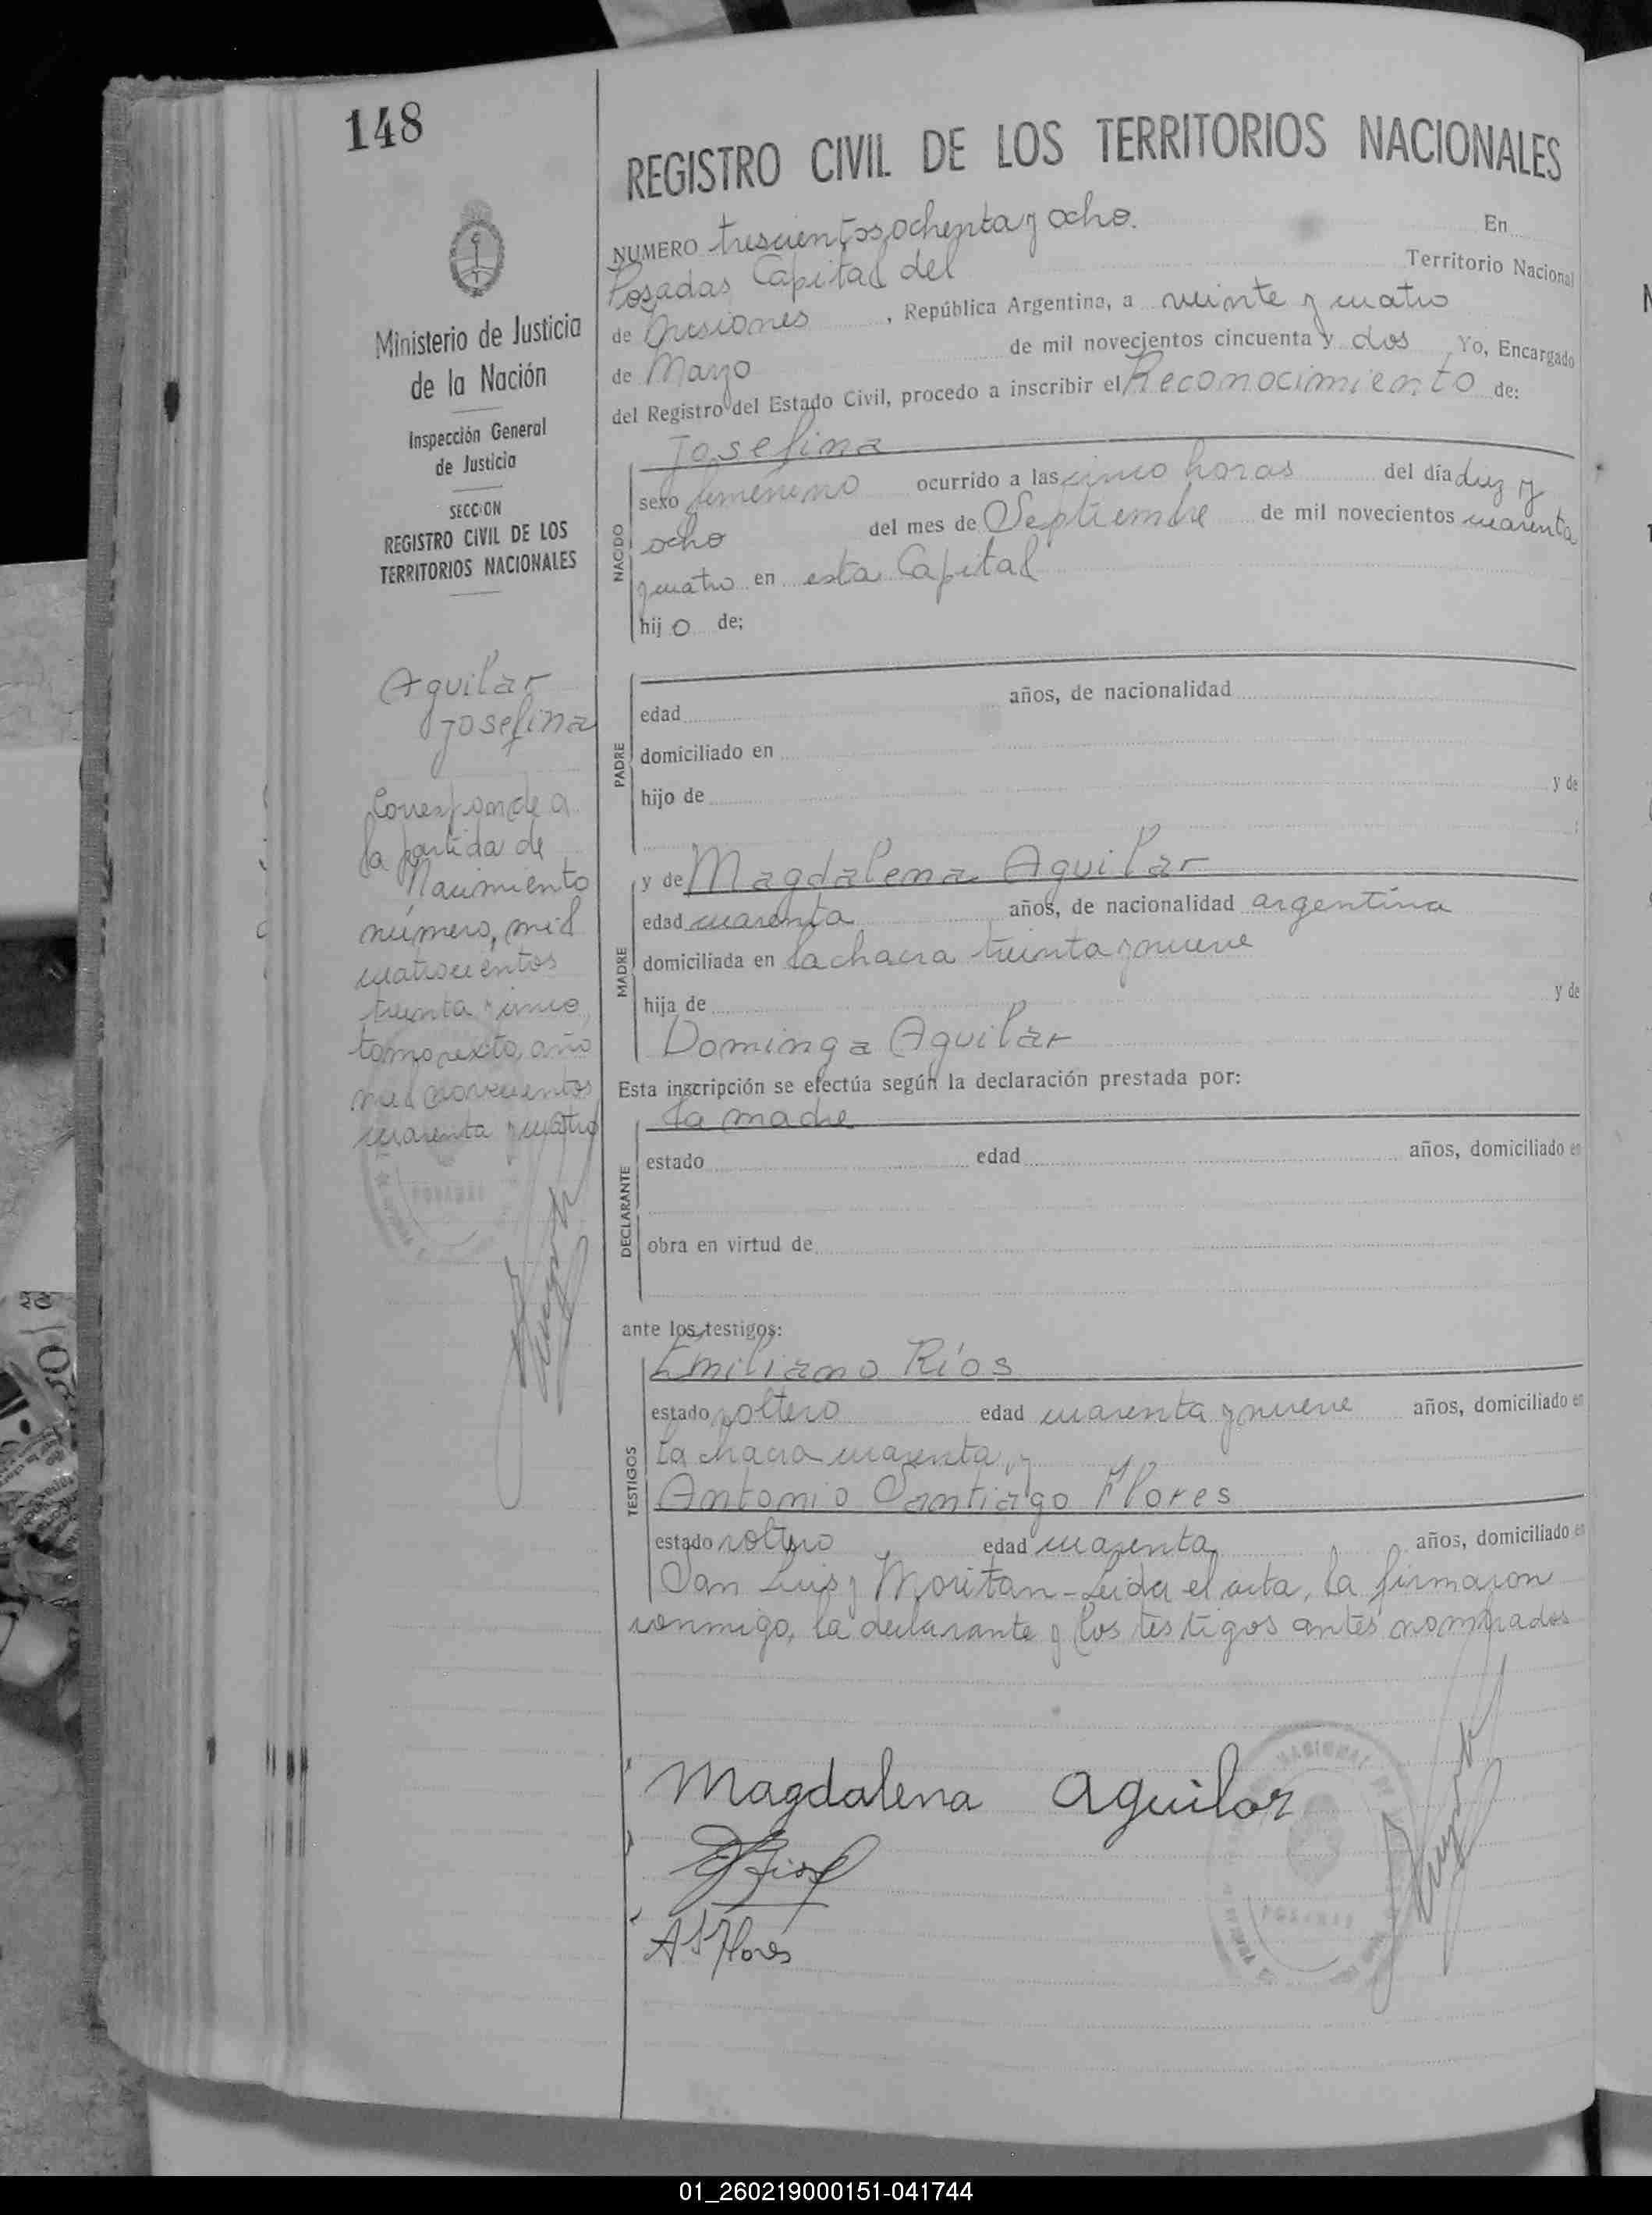 148
REGISTRO CIVIL DE LOS TERRITORIOS NACIONALES
Ministerio de Justicia
de la Nación
Inspección General
de Justicia
SECCION
REGISTRO CIVIL DE LOS
TERRITORIOS NACIONALES
Aguilar
Josefina
Corresponde a
la partida de
Nacimiento
número, mil
cuatrocientos
treinta y cinco,
tomo sexto, año
mil novecientos
cuarenta y cuatro
POSADAS
NUMERO trescientos ochenta y ocho. En
Posadas Capital del Territorio Nacional
de Misiones, República Argentina, a veinte y cuatro
de Marzo de mil novecientos cincuenta y dos Yo, Encargado
del Registro del Estado Civil, procedo a inscribir el Reconocimiento de:
NACIDO
Josefina
sexo femenino ocurrido a las cinco horas del día diez y
ocho del mes de Septiembre de mil novecientos cuarenta
y cuatro en esta Capital
hijo de;
PADRE
edad años, de nacionalidad
domiciliado en
hijo de y de
MADRE
y de Magdalena Aguilar
edad cuarenta años, de nacionalidad argentina
domiciliada en la chacra treinta y nueve
hija de y de
Dominga Aguilar
Esta inscripción se efectúa según la declaración prestada por:
DECLARANTE
la madre
estado edad años, domiciliado en
obra en virtud de
ante los testigos:
TESTIGOS
Emiliano Ríos
estado soltero edad cuarenta y nueve años, domiciliado en
la chacra cuarenta, y
Antonio Santiago Flores
estado soltero edad cuarenta años, domiciliado en
San Luis y Moritan - Leida el acta, la firmaron
conmigo, la declarante y los testigos antes nombrados
Magdalena Aguilar
A S Flores
POSADAS
01_260219000151-041744